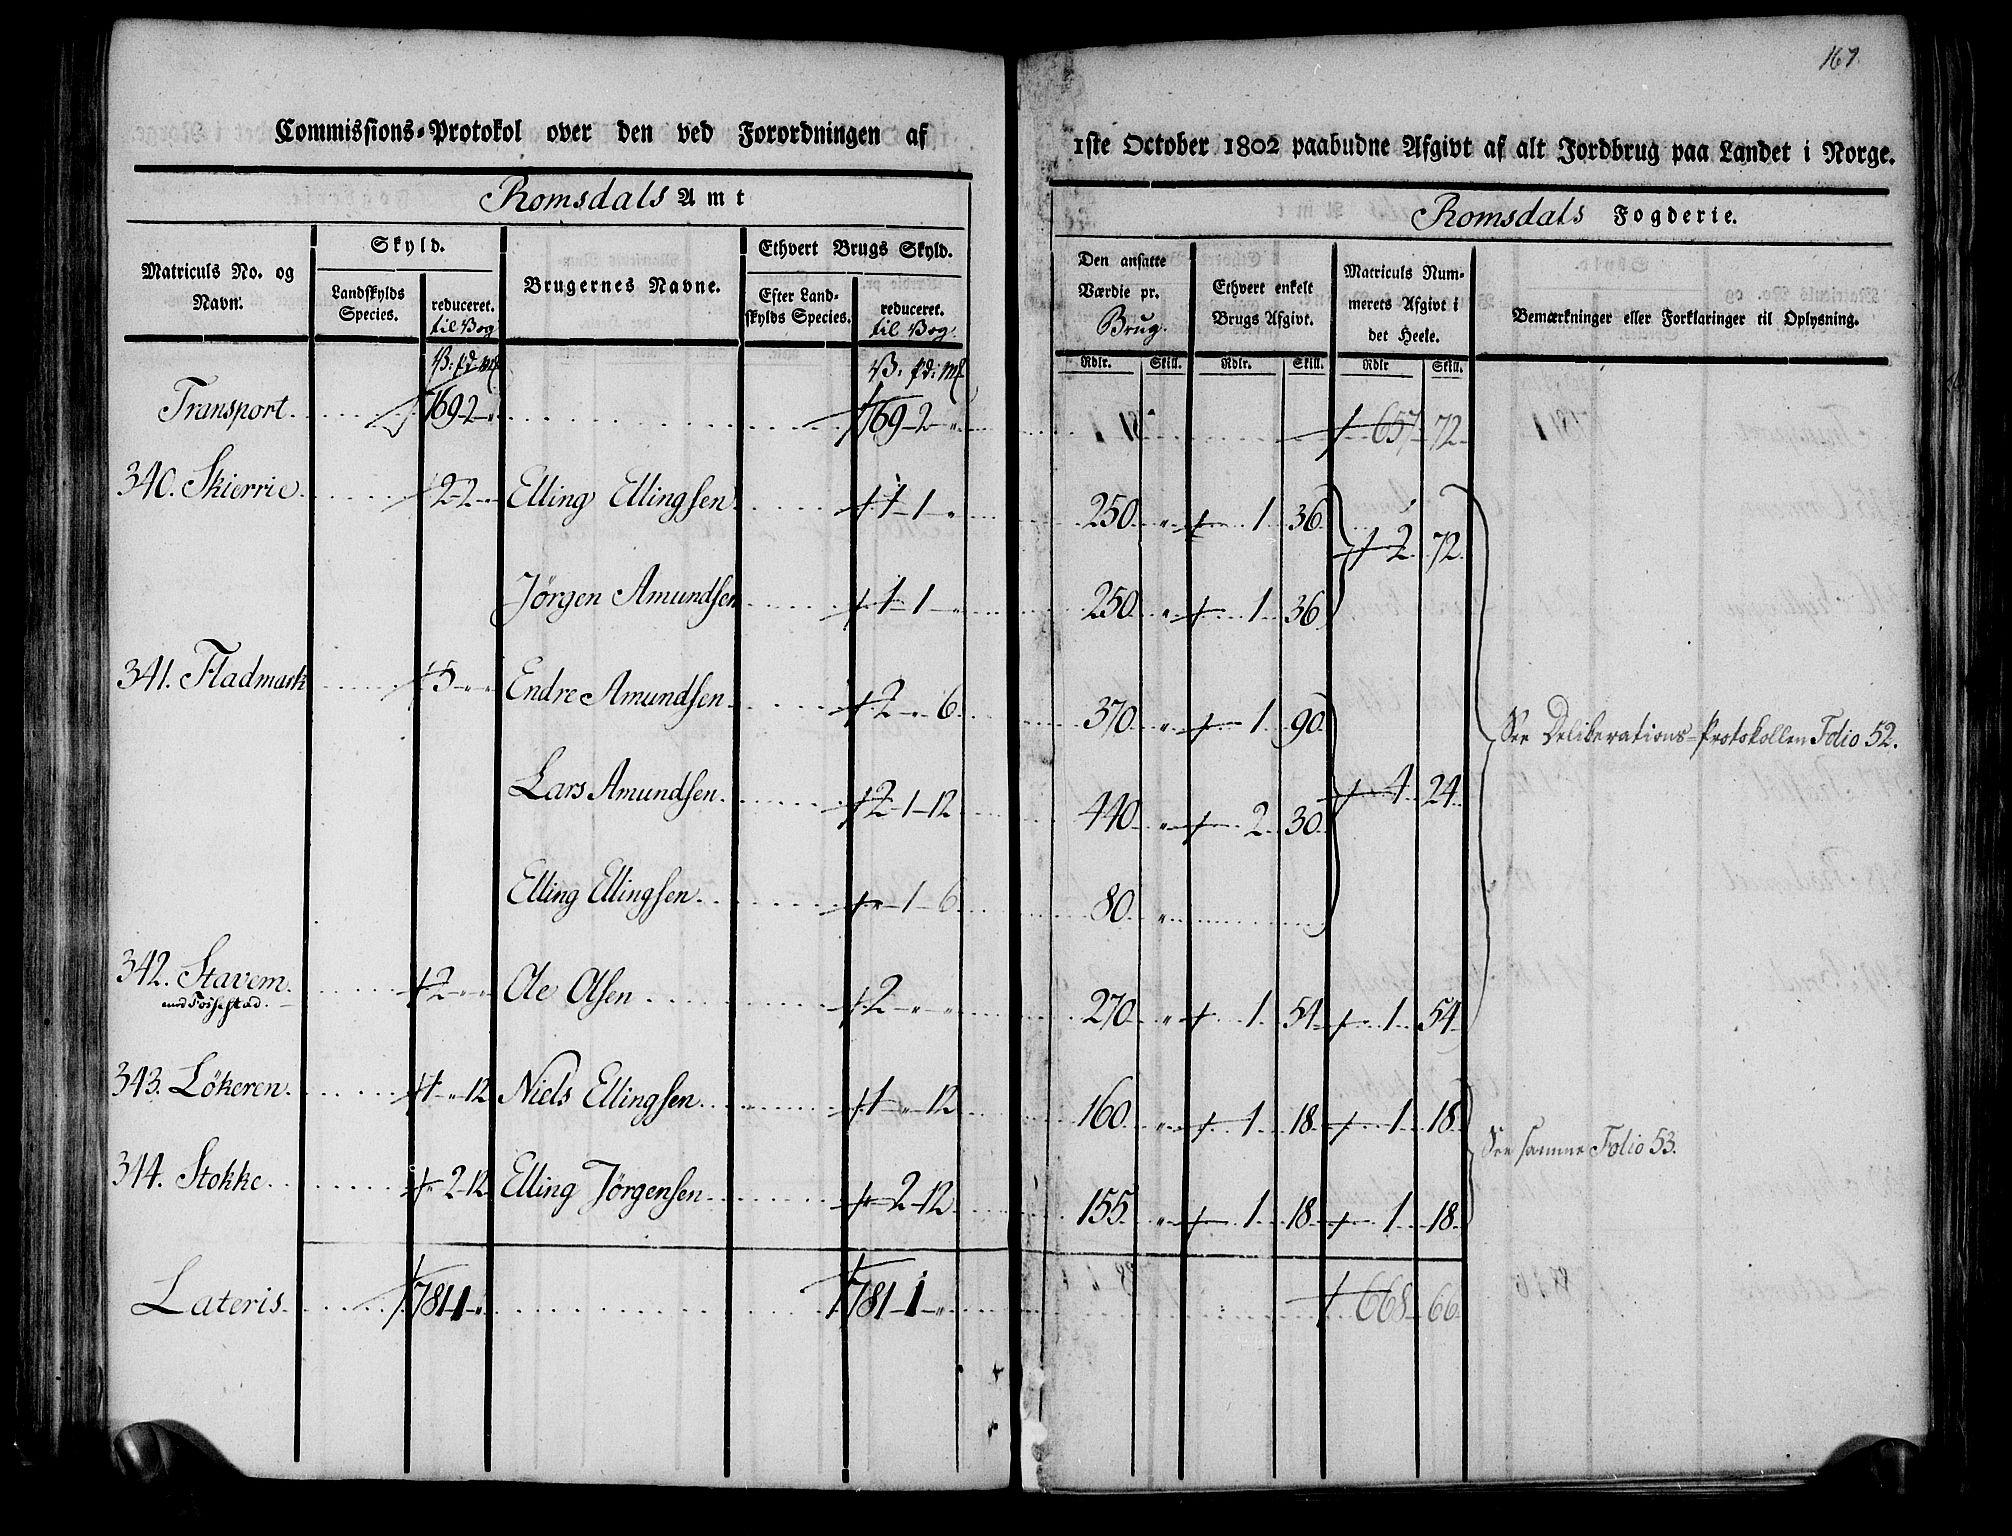 167.
Commissions-Protokol over den ved Forordningen af 1ste October 1802 paabudne Afgivt af alt Jordbrug paa Landet i Norge.
Romsdals Amt
Romsdals Fogderie.
Matriculs No. og Navn.
Skyld.
Landskylds Species.
reduceret. til Vog
Brugernes Navne.
Ethvert Brugs Skyld.
Efter Landskylds Species.
reduceret. til Vog.
Den ansatte Værdie pr. Brug.
Ethvert enkelt Brugs Afgivt.
Matriculs Nummerets Afgivt i det Heele.
Bemærkninger eller Forklaringer til Oplysning.
V. pd: Mk V. pd: Mk Rdlr. Skill. Rdlr. Skill. Rdlr Skill.
Transport. 769-2-" 769-2-" 657 72
340. Skierrie 2-2-" Elling Ellingsen 1-1-" 250 " 1 36 2 72
Jörgen Amundsen 1-1-" 250 " 1 36
341. Fladmark 5-"-" Endre Amundsen 2-"-6 370 " 1 90 4 24
Lars Amundsen 2-1-12 440 " 2 30
Elling Ellingsen "-1-6 80 "
See Deliberations-Protokollen Folio 52.
342. Stavem 2-"-" Ole Olsen 2-"-" 270 " 1 54 1 54
343. Lökeren 1-"-12 Niels Ellingsen 1-"-12 160 " 1 18 1 18
344. Stokke "-2-12 Elling Jörgensen "-2-12 155 " 1 18 1 18
See samme Folio 53.
Lateris 781-1-" 781-1-" 668 66